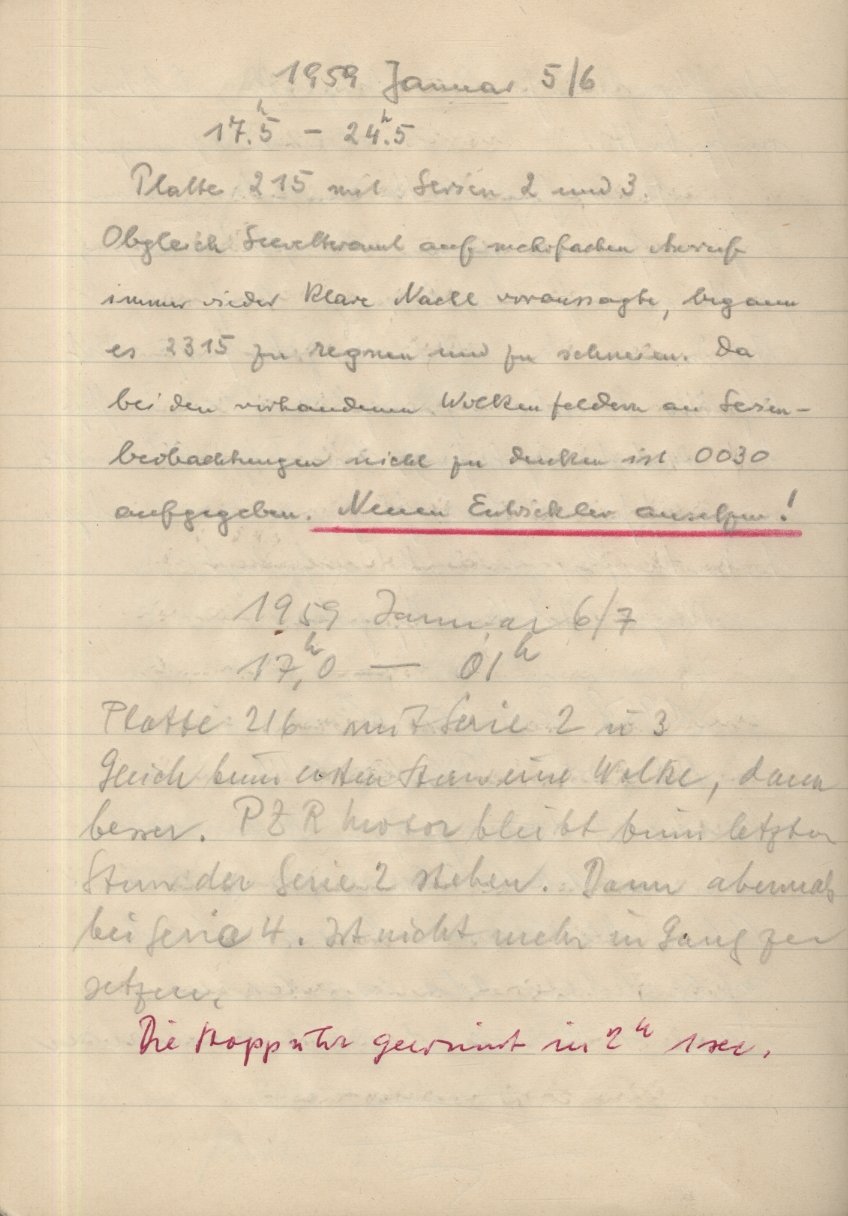 1959 Januar 5/6
17.ʰ5 – 24.ʰ5
Platte 215 mit Serien 2 und 3.
Obgleich Seewetteramt auf mehrfachen Anruf
immer wieder klare Nacht voraussagte, begann
es 2315 zu regnen und zu schneien. Da
bei den vorhandenen Wolkenfeldern an Serien-
beobachtungen nicht zu denken ist 0030
aufgegeben. Neuen Entwickler ansetzen!
1959 Januar 6/7
17,ʰ0 — 01ʰ
Platte 216 mit Serie 2 u 3
Gleich beim ersten Stern eine Wolke, dann
besser. PZR Motor bleibt beim letzten
Stern der Serie 2 stehen. Dann abermals
bei Serie 4. Ist nicht mehr in Gang zu
setzen.
Die Stoppuhr gewinnt in 2ʰ 1 sec.